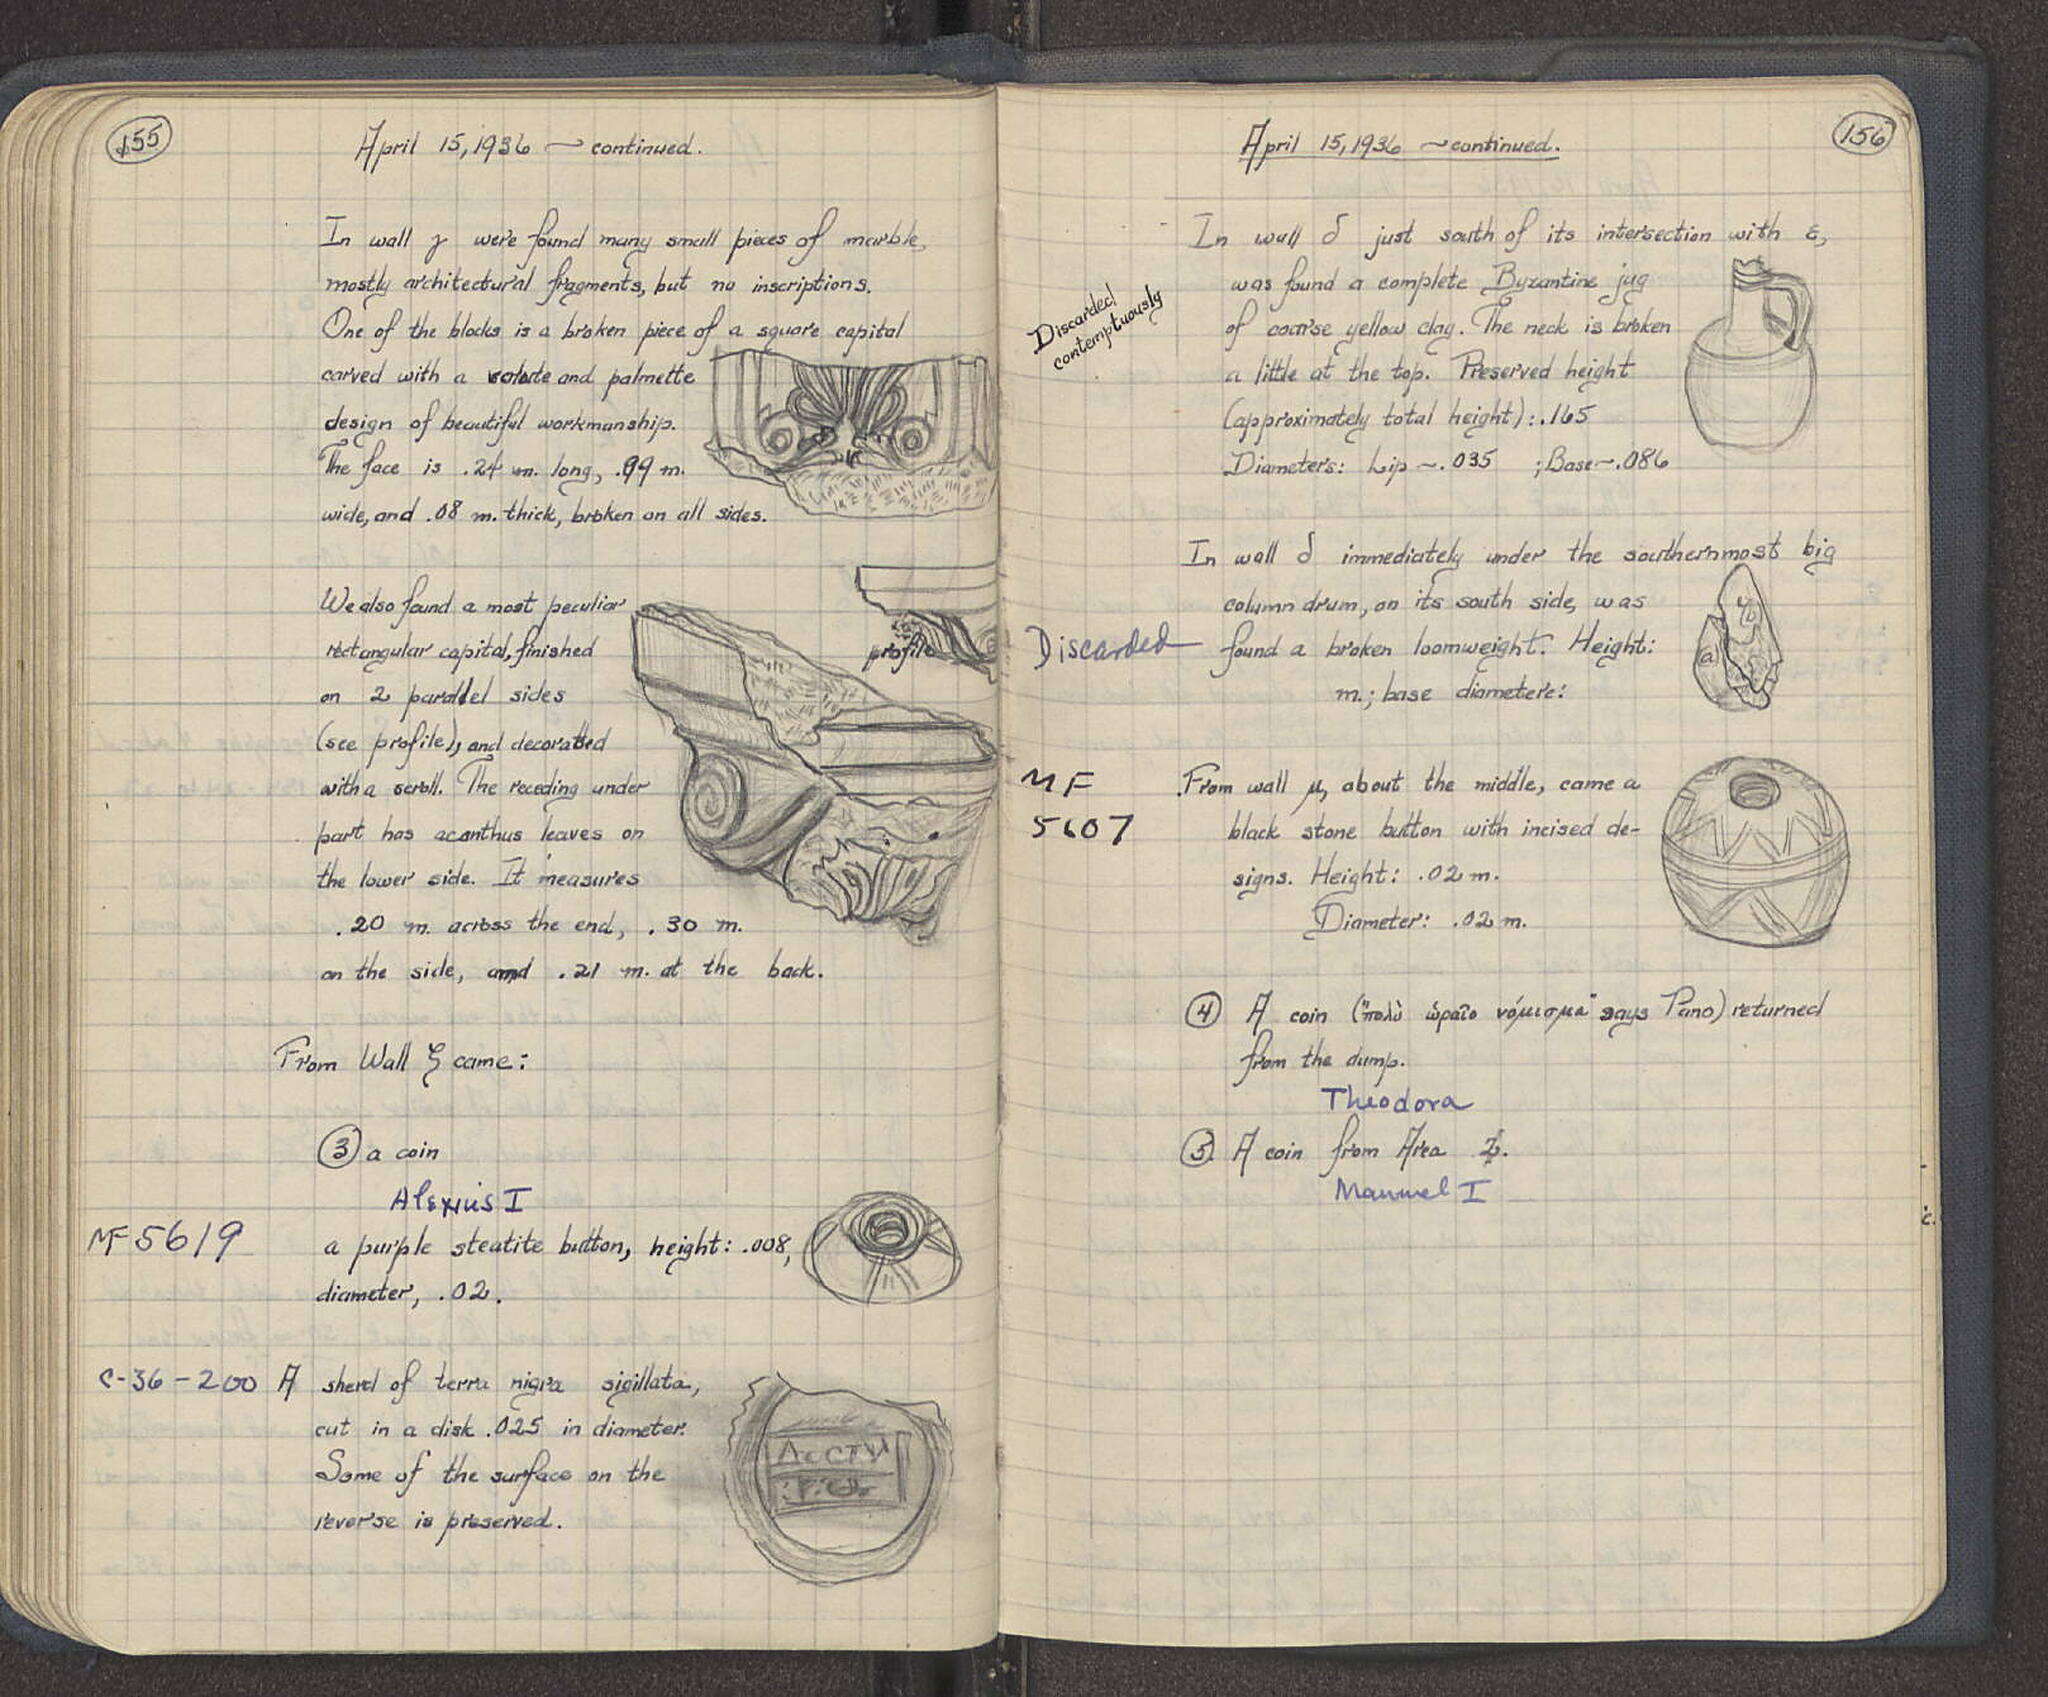 155
April 15, 1936 — continued.
In wall γ were found many small pieces of marble,
mostly architectural fragments, but no inscriptions.
One of the blocks is a broken piece of a square capital
carved with a volute and palmette
design of beautiful workmanship.
The face is .24 m. long, .99 m.
wide, and .08 m. thick, broken on all sides.
We also found a most peculiar
rectangular capital, finished
on 2 parallel sides
(see profile), and decorated
with a scroll. The receding under
part has acanthus leaves on
the lower side. It measures
.20 m. across the end, .30 m.
on the side, and .21 m. at the back.
profile
From Wall ζ came:
③ a coin
Alexius I
MF 5619
a purple steatite button, height: .008,
diameter, .02.
C-36-200 A sherd of terra nigra sigillata,
cut in a disk .025 in diameter.
Some of the surface on the
reverse is preserved.
156
April 15, 1936 — continued.
In wall δ just south of its intersection with ε,
was found a complete Byzantine jug
of coarse yellow clay. The neck is broken
a little at the top. Preserved height
(approximately total height): .165
Diameters: Lip — .035 ; Base — .086
Discarded
contemptuously
In wall δ immediately under the southernmost big
column drum, on its south side, was
Discarded found a broken loomweight. Height:
m.; base diameter:
a
MF
5607
From wall μ, about the middle, came a
black stone button with incised de-
signs. Height: .02 m.
Diameter: .02 m.
④ A coin ("πολὺ ὡραῖο νόμισμα" says Pano) returned
from the dump.
Theodora
⑤ A coin from Area 2.
Manuel I